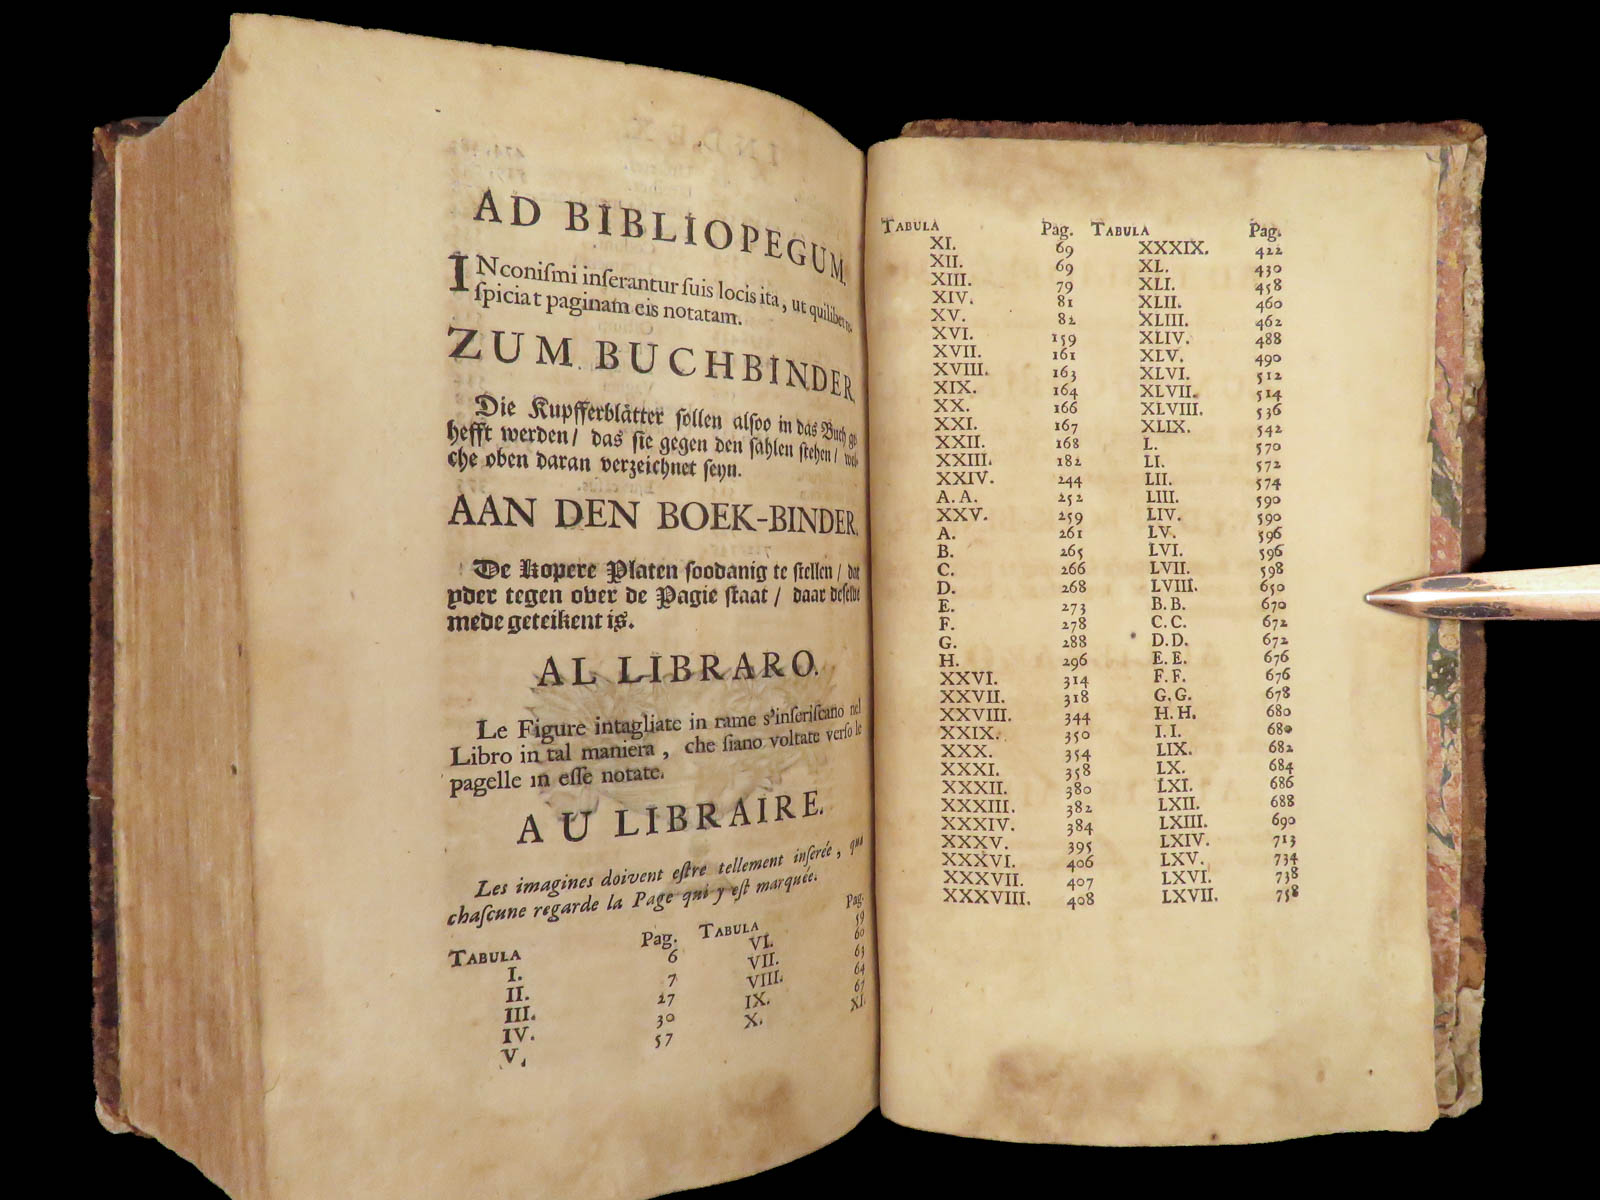 AD BIBLIOPEGUM.
INconismi inſerantur ſuis locis ita, ut quilibet re-
ſpiciat paginam eis notatam.
ZUM BUCHBINDER.
Die Kupfferblåtter ſollen alſoo in das Buch ge
hefft werden/ das ſie gegen den ſahlen ſtehen/ wel-
che oben daran verzeichnet ſeyn.
AAN DEN BOEK-BINDER.
De kopere Platen ſoodanig te ſtellen/ dat
yder tegen over de Pagie ſtaat/ daar deſelve
mede geteikent is.
AL LIBRARO.
Le Figure intagliate in rame s'inſeriſcano nel
Libro in tal maniera, che ſiano voltate verſo le
pagelle in eſſe notate.
AU LIBRAIRE.
Les imagines doivent eſtre tellement inſerée, que
chaſcune regarde la Page qui y eſt marquée.
TABULA Pag. TABULA Pag.
I. 6 VI. 59
II. 7 VII. 60
III. 27 VIII. 63
IV. 30 IX. 64
V. 57 X. 67
XI.
TABULA Pag. TABULA Pag.
XI. 69 XXXIX. 422
XII. 69 XL. 430
XIII. 79 XLI. 458
XIV. 81 XLII. 460
XV. 82 XLIII. 462
XVI. 159 XLIV. 488
XVII. 161 XLV. 490
XVIII. 163 XLVI. 512
XIX. 164 XLVII. 514
XX. 166 XLVIII. 536
XXI. 167 XLIX. 542
XXII. 168 L. 570
XXIII. 182 LI. 572
XXIV. 244 LII. 574
A. A. 252 LIII. 590
XXV. 259 LIV. 590
A. 261 LV. 596
B. 265 LVI. 596
C. 266 LVII. 598
D. 268 LVIII. 650
E. 273 B. B. 670
F. 278 C. C. 672
G. 288 D. D. 672
H. 296 E. E. 676
XXVI. 314 F. F. 676
XXVII. 318 G. G. 678
XXVIII. 344 H. H. 680
XXIX. 350 I. I. 680
XXX. 354 LIX. 682
XXXI. 358 LX. 684
XXXII. 380 LXI. 686
XXXIII. 382 LXII. 688
XXXIV. 384 LXIII. 690
XXXV. 395 LXIV. 713
XXXVI. 406 LXV. 734
XXXVII. 407 LXVI. 738
XXXVIII. 408 LXVII. 758